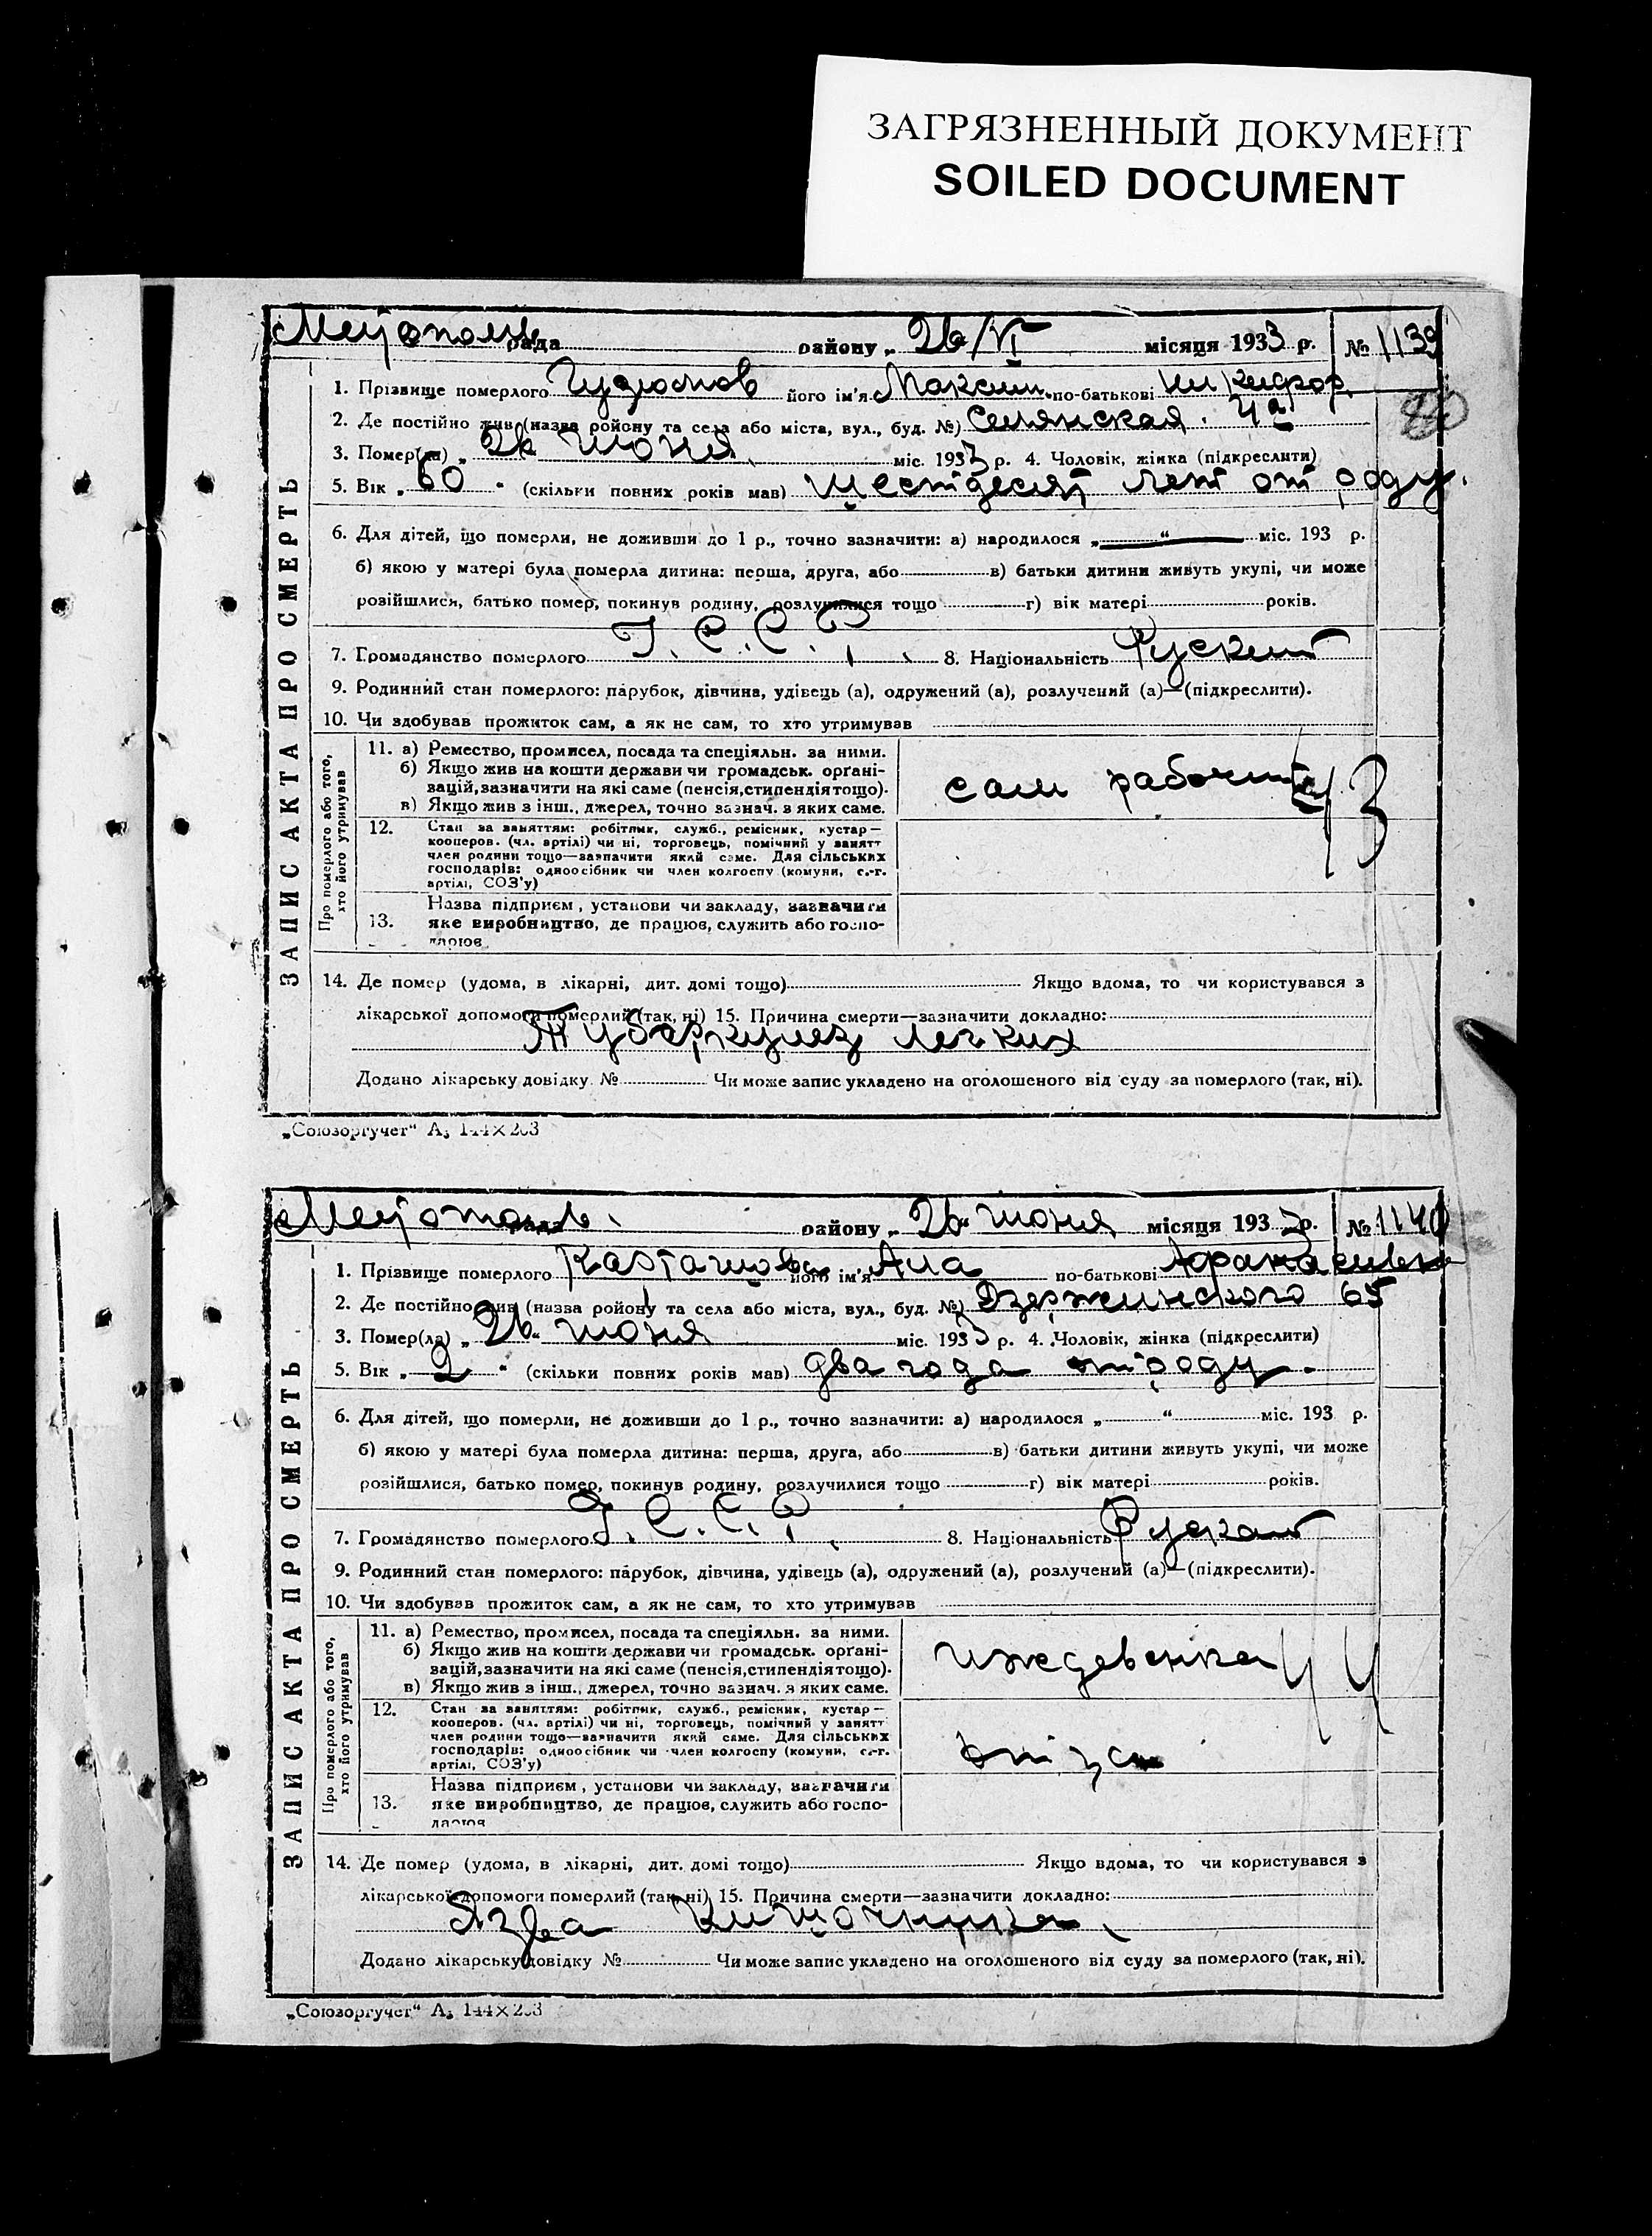 ЗАГРЯЗНЕННЫЙ ДОКУМЕНТ
SOILED DOCUMENT
рада району „ 26/VI місяця 1933 р. № 1139
ЗАПИС АКТА ПРО СМЕРТЬ
1. Прізвище померлого його ім'я Максим по-батькові
2. Де постійно жив (назва району та села або міста, вул., буд. №)
3. Помер(ла) „ 26 июня міс. 1933 р. 4. Чоловік, жінка (підкреслити)
5. Вік „ 60 “ (скільки повних років мав) шестдесят лет от роду.
6. Для дітей, що померли, не доживши до 1 р., точно зазначити: а) народилося „ “ міс. 193 р.
б) якою у матері була померла дитина: перша, друга, або в) батьки дитини живуть укупі, чи може
розійшлися, батько помер, покинув родину, розлучилися тощо г) вік матері років.
7. Громадянство померлого У.С.С.Р. 8. Національність Руский
9. Родинний стан померлого: парубок, дівчина, удівець (а), одружений (а), розлучений (а)—(підкреслити).
10. Чи здобував прожиток сам, а як не сам, то хто утримував
Про померлого або того, хто його утримував
11. а) Ремество, промисел, посада та спеціяльн. за ними.
б) Якщо жив на кошти держави чи громадськ. орґані-
зацій, зазначити на які саме (пенсія, стипендія тощо).
в) Якщо жив з інш., джерел, точно зазнач. з яких саме.
сам рабочий 43
12. Стан за заняттям: робітник, служб., ремісник, кустар—
кооперов. (чл. артілі) чи ні, торговець, помічний у занятт
член родини тощо—зазначити який саме. Для сільських
господарів: одноосібник чи член колгоспу (комуни, с.-г.
артілі, СОЗ'у)
13. Назва підприєм, установи чи закладу, зазначити
яке виробництво, де працюв, служить або госпо-
дарюв
14. Де помер (удома, в лікарні, дит. домі тощо) Якщо вдома, то чи користувався з
лікарської допомоги померлий (так, ні) 15. Причина смерти—зазначити докладно:
Туберкулез легких
Додано лікарську довідку № Чи може запис укладено на оголошеного від суду за померлого (так, ні).
„Союзоргучет“ А₅ 144×203
рада району „ 26 “ июня місяця 1933 р. № 1140
ЗАПИС АКТА ПРО СМЕРТЬ
1. Прізвище померлого Карташова його ім'я Ана по-батькові
2. Де постійно жив (назва району та села або міста, вул., буд. №) Дзержинского 65
3. Помер(ла) „ 26 “ июня міс. 1933 р. 4. Чоловік, жінка (підкреслити)
5. Вік „ 2 “ (скільки повних років мав) два года от роду.
6. Для дітей, що померли, не доживши до 1 р., точно зазначити: а) народилося „ “ міс. 193 р.
б) якою у матері була померла дитина: перша, друга, або в) батьки дитини живуть укупі, чи може
розійшлися, батько помер, покинув родину, розлучилися тощо г) вік матері років.
7. Громадянство померлого У.С.С.Р. 8. Національність
9. Родинний стан померлого: парубок, дівчина, удівець (а), одружений (а), розлучений (а)—(підкреслити).
10. Чи здобував прожиток сам, а як не сам, то хто утримував
Про померлого або того, хто його утримував
11. а) Ремество, промисел, посада та спеціяльн. за ними.
б) Якщо жив на кошти держави чи громадськ. орґані-
зацій, зазначити на які саме (пенсія, стипендія тощо).
в) Якщо жив з інш., джерел, точно зазнач. з яких саме.
иждевенка 44
12. Стан за заняттям: робітник, служб., ремісник, кустар—
кооперов. (чл. артілі) чи ні, торговець, помічний у занятт
член родини тощо—зазначити який саме. Для сільських
господарів: одноосібник чи член колгоспу (комуни, с.-г.
артілі, СОЗ'у)
13. Назва підприєм, установи чи закладу, зазначити
яке виробництво, де працюв, служить або госпо-
дарюв
14. Де помер (удома, в лікарні, дит. домі тощо) Якщо вдома, то чи користувався з
лікарської допомоги померлий (так, ні) 15. Причина смерти—зазначити докладно:
Язва
Додано лікарську довідку № Чи може запис укладено на оголошеного від суду за померлого (так, ні).
„Союзоргучет“ А₅ 144×203